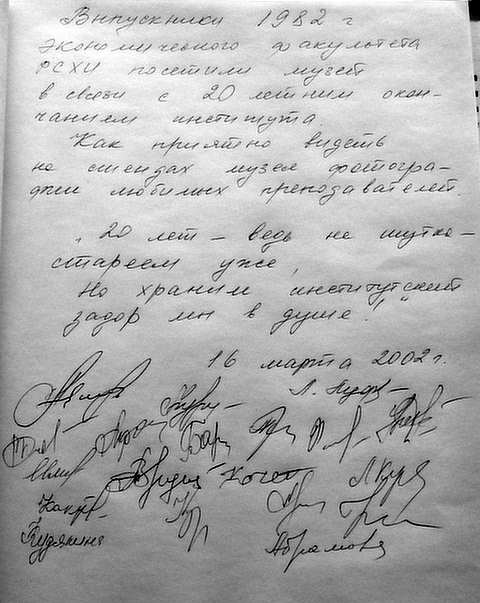 Выпускники 1982 г
экономического факультета
РСХИ посетили музей
в связи с 20 летним окон-
чанием института.
Как приятно видеть
на стендах музея фотогра-
фии любимых преподавателей.
„20 лет – ведь не шутка –
стареем уже,
Но храним институтский
задор мы в душе!"
16 марта 2002 г.
Кудякина
Абрамова